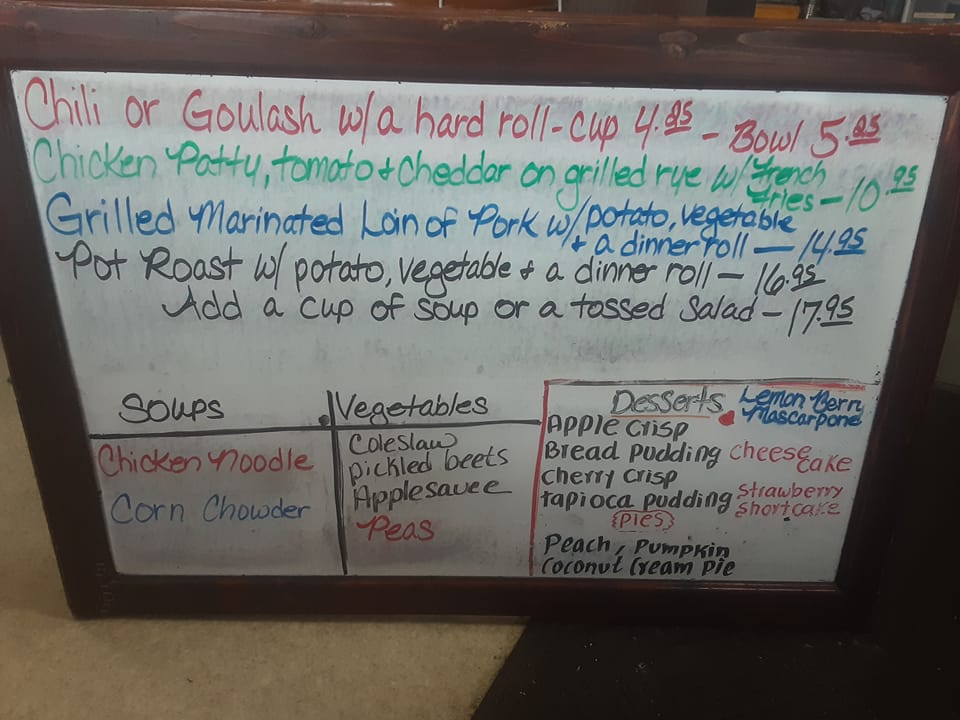 Chili or Goulash w/a hard roll - cup 4.95 - Bowl 5.95
Chicken Patty, tomato + Cheddar on grilled rye w/ French
fries - 10.95
Grilled Marinated Loin of Pork w/ potato, vegetable
+ a dinner roll - 14.95
Pot Roast w/ potato, vegetable + a dinner roll - 16.95
Add a cup of soup or a tossed Salad - 17.95
Soups
Chicken Noodle
Corn Chowder
Vegetables
Coleslaw
pickled beets
Applesauce
Peas
Desserts
Lemon Berry
Mascarpone
Apple Crisp
Bread Pudding
cheese
cake
cherry crisp
tapioca pudding
strawberry
shortcake
{Pies}
Peach, Pumpkin
Coconut Cream Pie